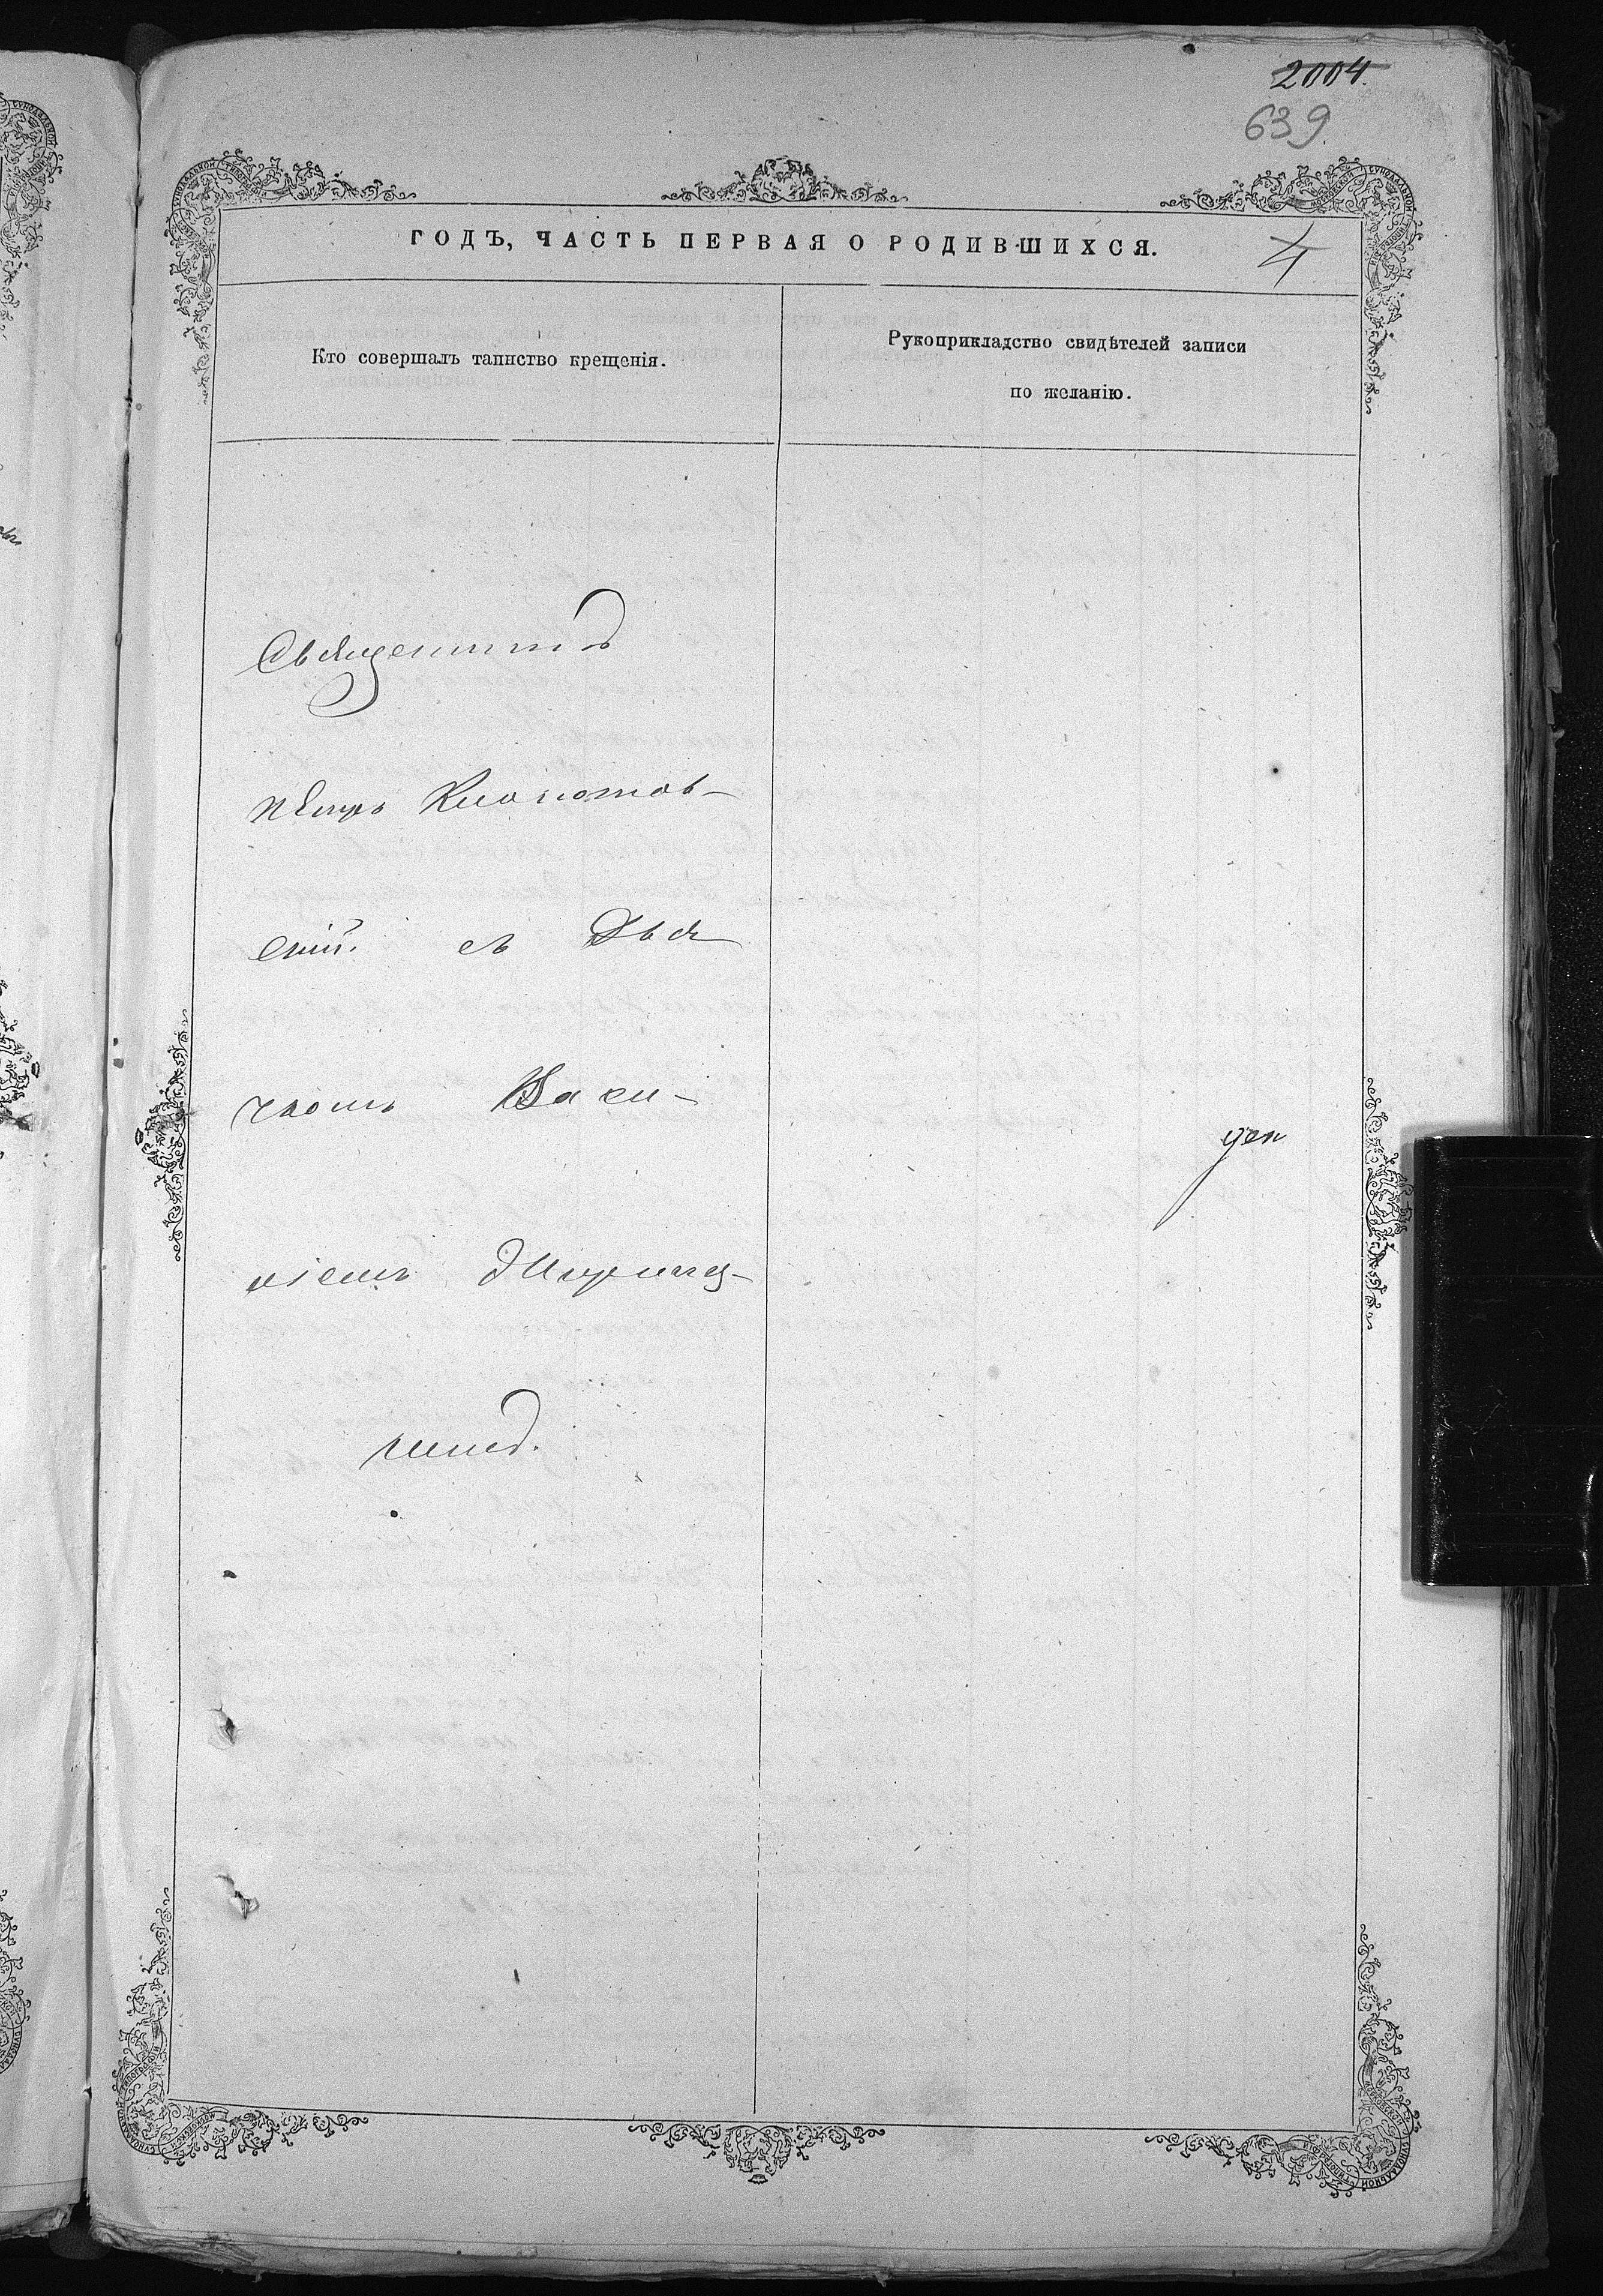 2004.
639
ГОДЪ, ЧАСТЬ ПЕРВАЯ О РОДИВШИХСЯ.
4
Кто совершалъ таинство крещенія.
Рукоприкладство свидѣтелей записи
по желанію.
Священникъ
Петръ
скій. съ Дья
чкомъ Васи-
ліемъ